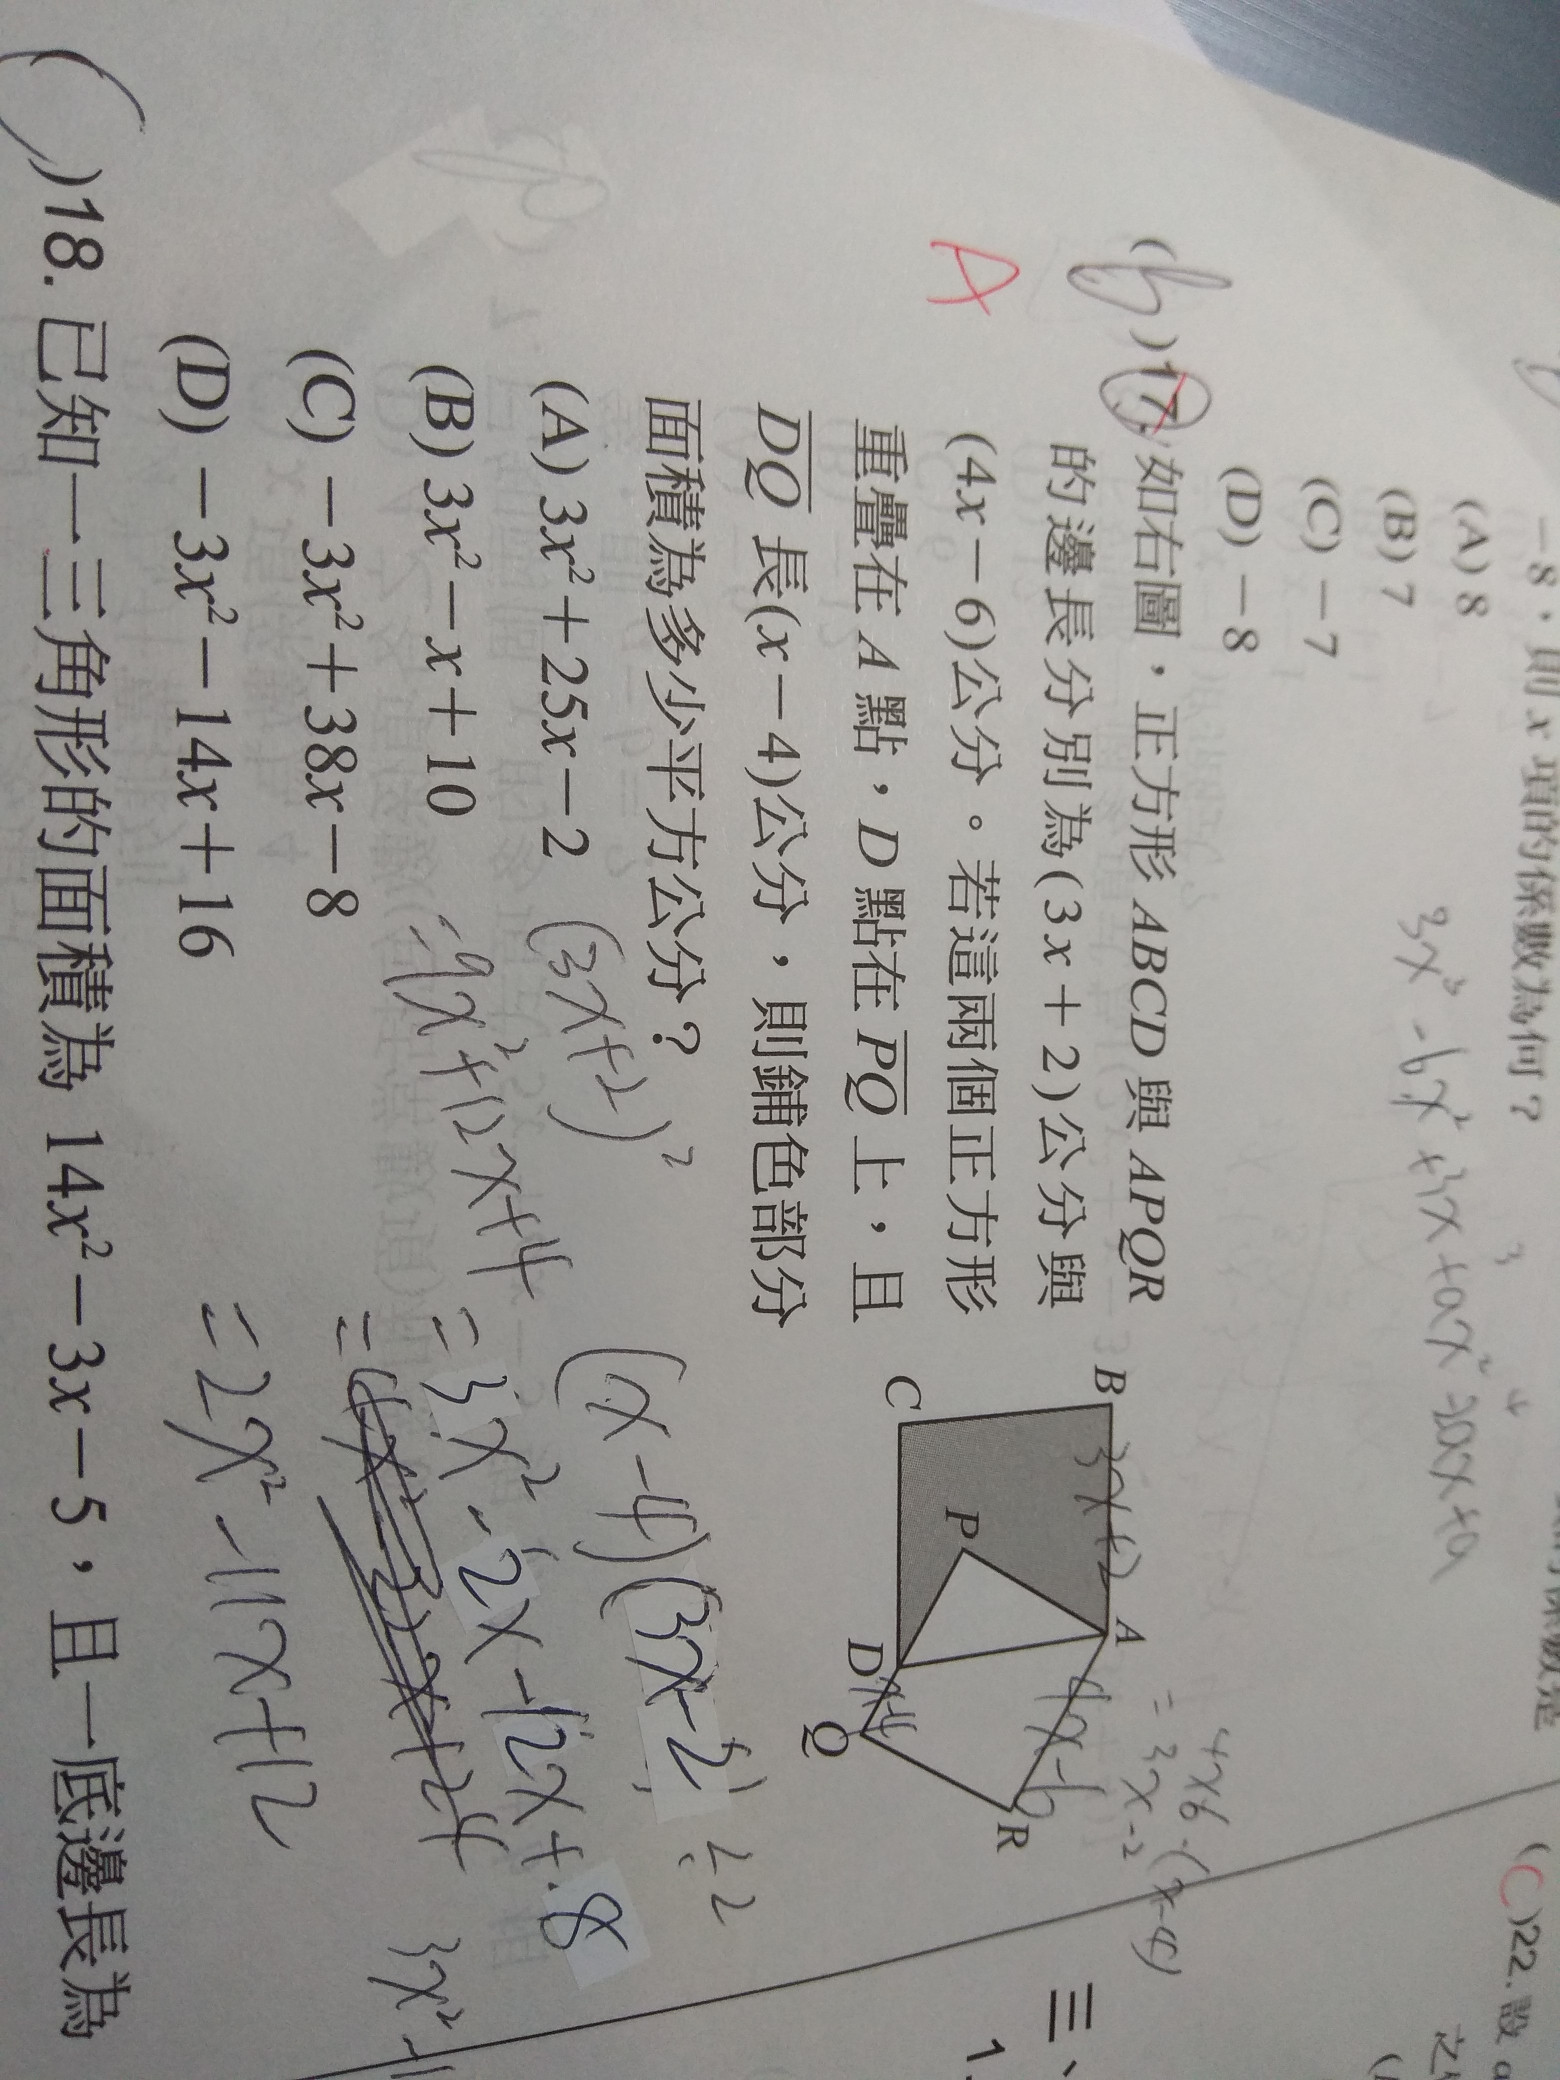 -8，則 x 項的係數為何？
(A) 8
(B) 7
(C) -7
(D) -8
3x³ - 6x² + 3x + ax² - 2ax + a
( )17. 如右圖，正方形 ABCD 與 APQR
的邊長分別為(3x+2)公分與
(4x-6)公分。若這兩個正方形
重疊在 A 點，D 點在 PQ 上，且
DQ 長(x-4)公分，則鋪色部分
面積為多少平方公分？
A
(A) 3x²+25x-2
(B) 3x²-x+10
(C) -3x²+38x-8
(D) -3x²-14x+16
B
3x+2
A
4x-6
P
C
D
x-4
Q
R
4x-6-(x-4)
=3x-2
(3x+2)²
=9x²+12x+4
(x-4)(3x-2) ÷2
=3x²-2x-12x+8
=
=2x²-11x+12
3x²-
( )18. 已知一三角形的面積為 14x²-3x-5，且一底邊長為
(C)22. 設
三、
1.